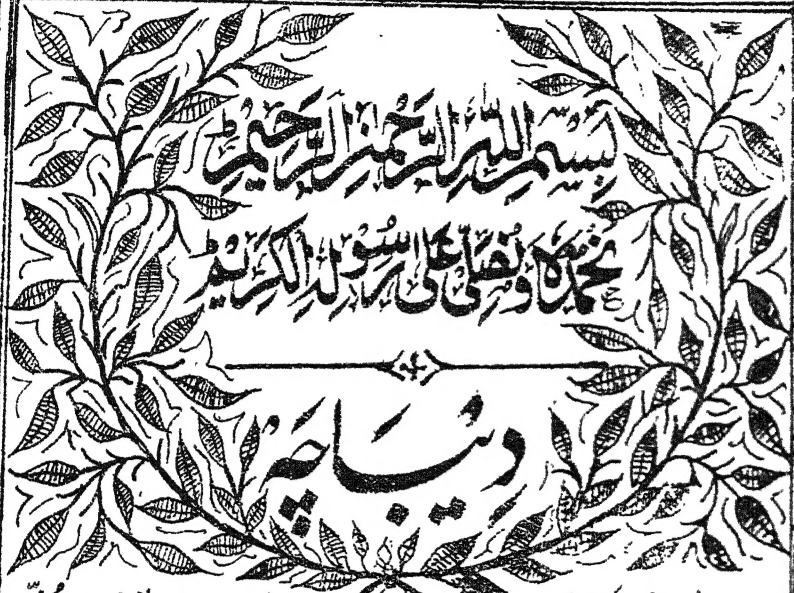 بِسْمِ اللّٰهِ الرَّحْمٰنِ الرَّحِيْمِؕ
نَحْمَدُهٗ وَنُصَلِّیْ عَلٰی رَسُوْلِهِ الْکَرِیْمِؕ
دِیْبَاچَہ